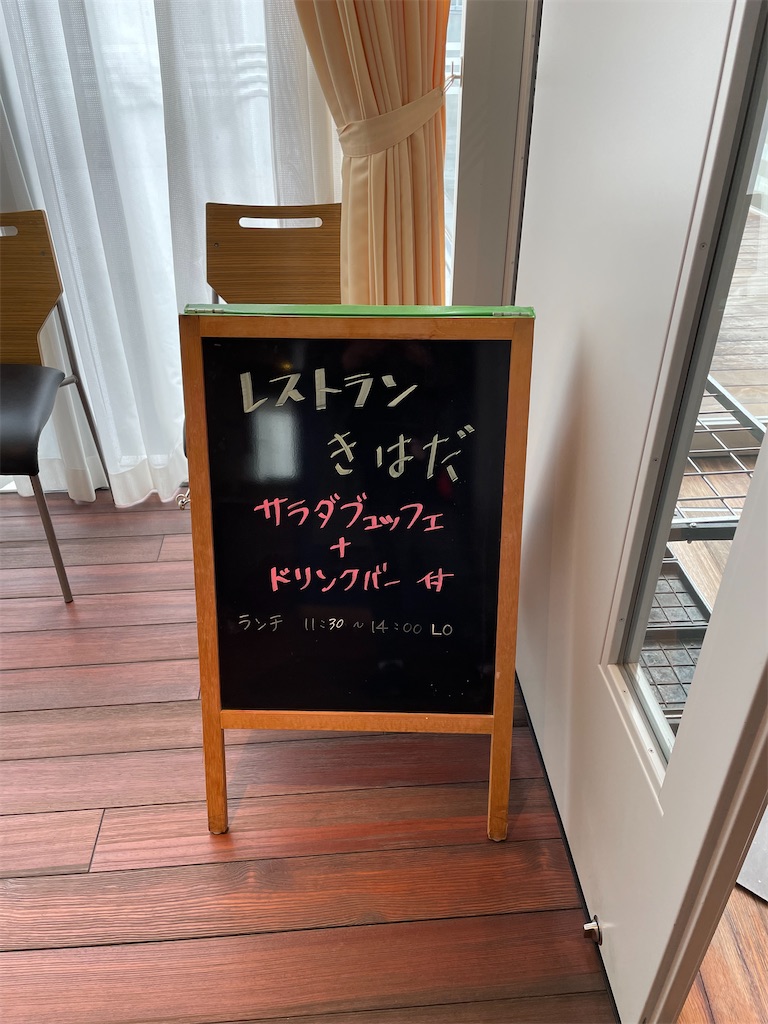 レストラン
きはだ
サラダブュッフェ
+
ドリンクバー 付
ランチ 11:30 ~ 14:00 LO